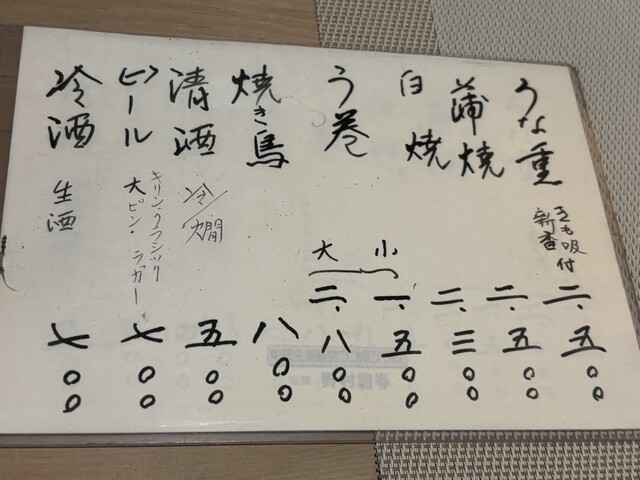 うな重
きも吸付
新香
二.五〇〇
蒲焼
二.五〇〇
白焼
二.三〇〇
う巻
小
一.五〇〇
大
二.八〇〇
焼き鳥
八〇〇
清酒
冷/燗
五〇〇
ビール
キリン・クラシック
大ビン・ラガー
七〇〇
冷酒
生酒
七〇〇